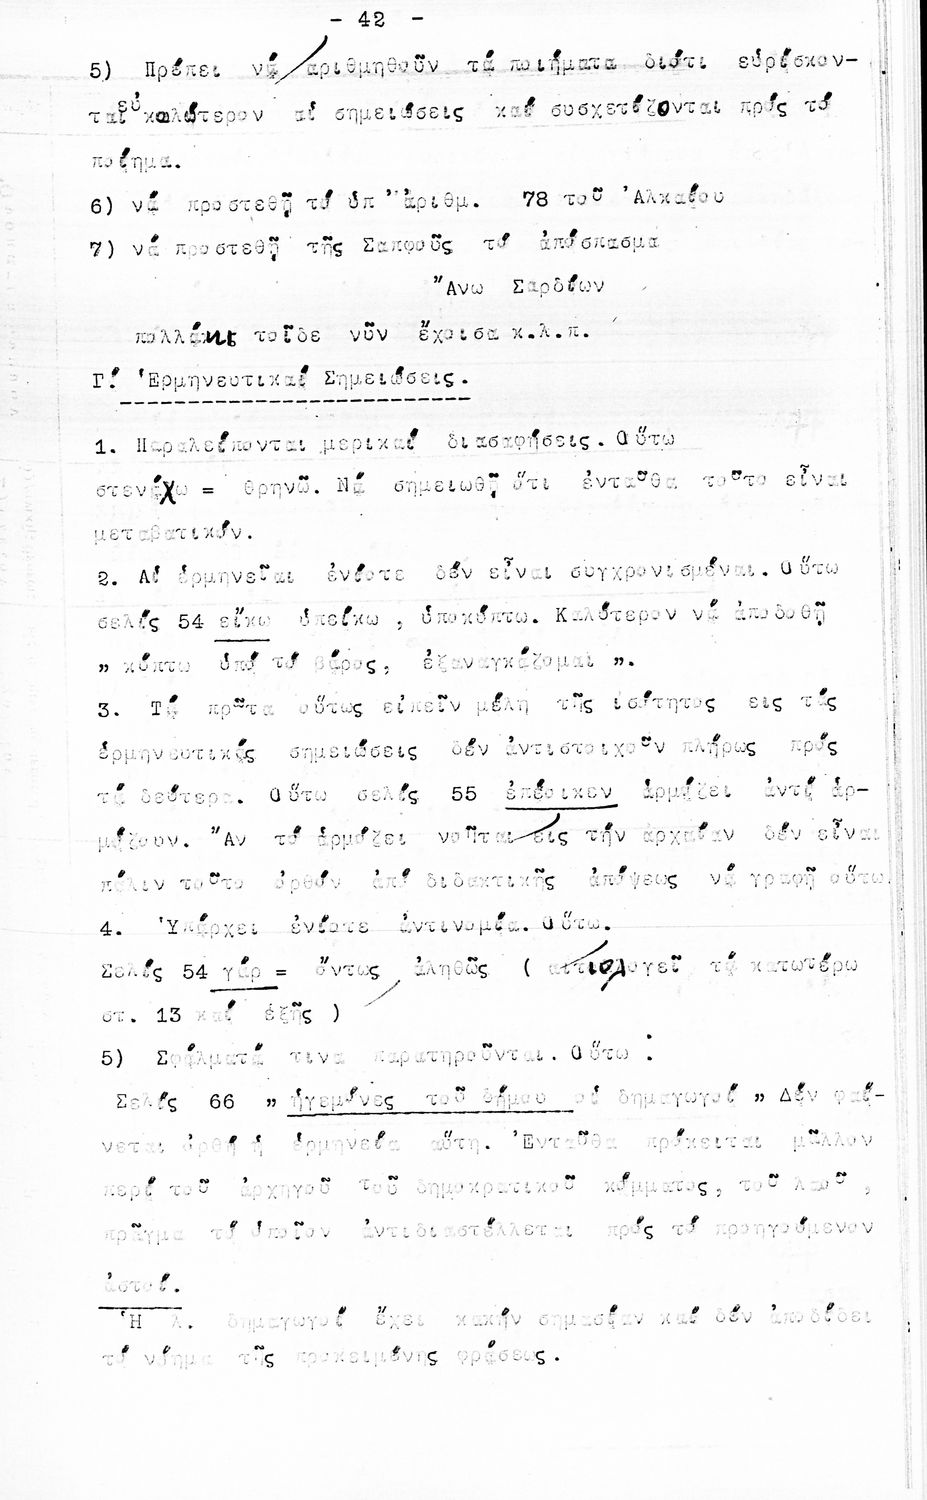 - 42 -
5) Πρέπει νά ἀριθμηθοῦν τά ποιήματα διότι εὑρίσκον-
ται εὐκολώτερον αἱ σημειώσεις καί συσχετίζονται πρός τό
ποίημα.
6) νά προστεθῇ τό ὑπ' ἀριθμ. 78 τοῦ Ἀλκαίου
7) νά προστεθῇ τῆς Σαπφοῦς τό ἀπόσπασμα
"Ανω Σαρδίων
πολλάκις τοῖδε νῦν ἔχοισα κ.λ.π.
Γ! Ἑρμηνευτικαί Σημειώσεις.
1. Παραλείπονται μερικαί διασαφήσεις. Οὕτω
στενάχω = θρηνῶ. Νά σημειωθῇ ὅτι ἐνταῦθα τοῦτο εἶναι
μεταβατικόν.
2. Αἱ ἑρμηνεῖαι ἐνίοτε δέν εἶναι συγχρονισμέναι. Οὕτω
σελίς 54 εἴκω ὑπείκω , ὑποκύπτω. Καλύτερον νά ἀποδοθῇ
" κύπτω ὑπό τό βάρος, ἐξαναγκάζομαι ".
3. Τά πρῶτα οὕτως εἰπεῖν μέλη τῆς ἰσότητος εις τάς
ἑρμηνευτικάς σημειώσεις δέν ἀντιστοιχοῦν πλήρως πρός
τά δεύτερα. Οὕτω σελίς 55 ἐπέοικεν ἁρμόζει ἀντί ἁρ-
μόζουν. "Αν τό ἁρμόζει νοῆται εἰς τήν ἀρχαίαν δέν εἶναι
πάλιν τοῦτο ὀρθόν ἀπό διδακτικῆς ἀπόψεως νά γραφῇ οὕτω.
4. Ὑπάρχει ἐνίοτε ἀντινομία. Οὕτω.
Σελίς 54 γάρ = ὄντως ἀληθῶς ( αιτιολογεῖ τά κατωτέρω
στ. 13 καί ἑξῆς )
5) Σφάλματά τινα παρατηροῦνται. Οὕτω :
Σελίς 66 " ἡγεμόνες τοῦ δήμου οἱ δημαγωγοί " Δέν φαί-
νεται ὀρθή ἡ ἑρμηνεία αὕτη. Ἐνταῦθα πρόκειται μᾶλλον
περί τοῦ ἀρχηγοῦ τοῦ δημοκρατικοῦ κόμματος, τοῦ λαοῦ ,
πρᾶγμα τό ὁποῖον ἀντιδιαστέλλεται πρός τό προηγούμενον
ἀστοί.
Ἡ λ. δημαγωγοί ἔχει κακήν σημασίαν καί δέν ἀποδίδει
τό νόημα τῆς προκειμένης φράσεως.